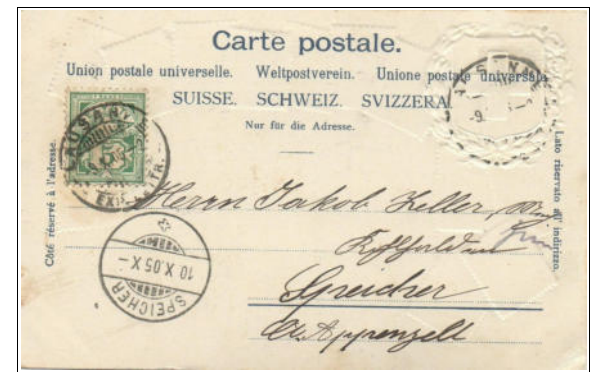 Carte postale.
Union postale universelle. Weltpostverein. Unione postale universale
SUISSE. SCHWEIZ. SVIZZERA
Nur für die Adresse.
Côté réservé à l'adresse.
Lato riservato all' indirizzo.
LAUSANNE
EXP. LETTR.
Herrn Jakob Zeller,
Speicher
Ct. Appenzell
SPEICHER
10 X.05 X–